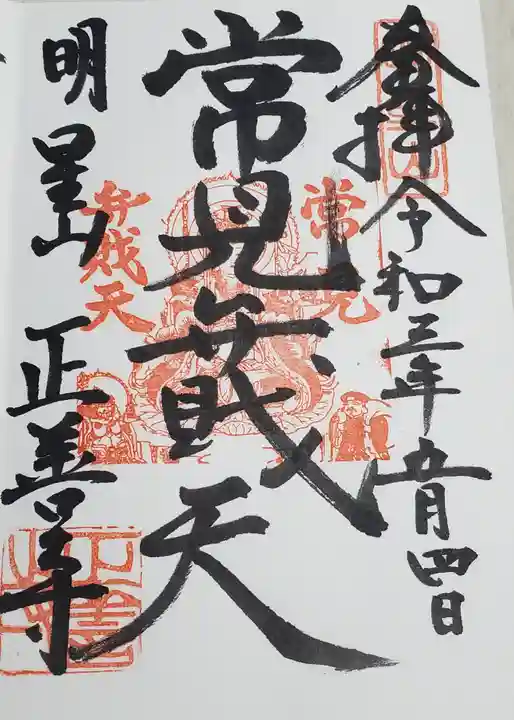 奉拝 令和三年五月四日
常見弁戝天
常見
弁戝天
明星山 正善寺